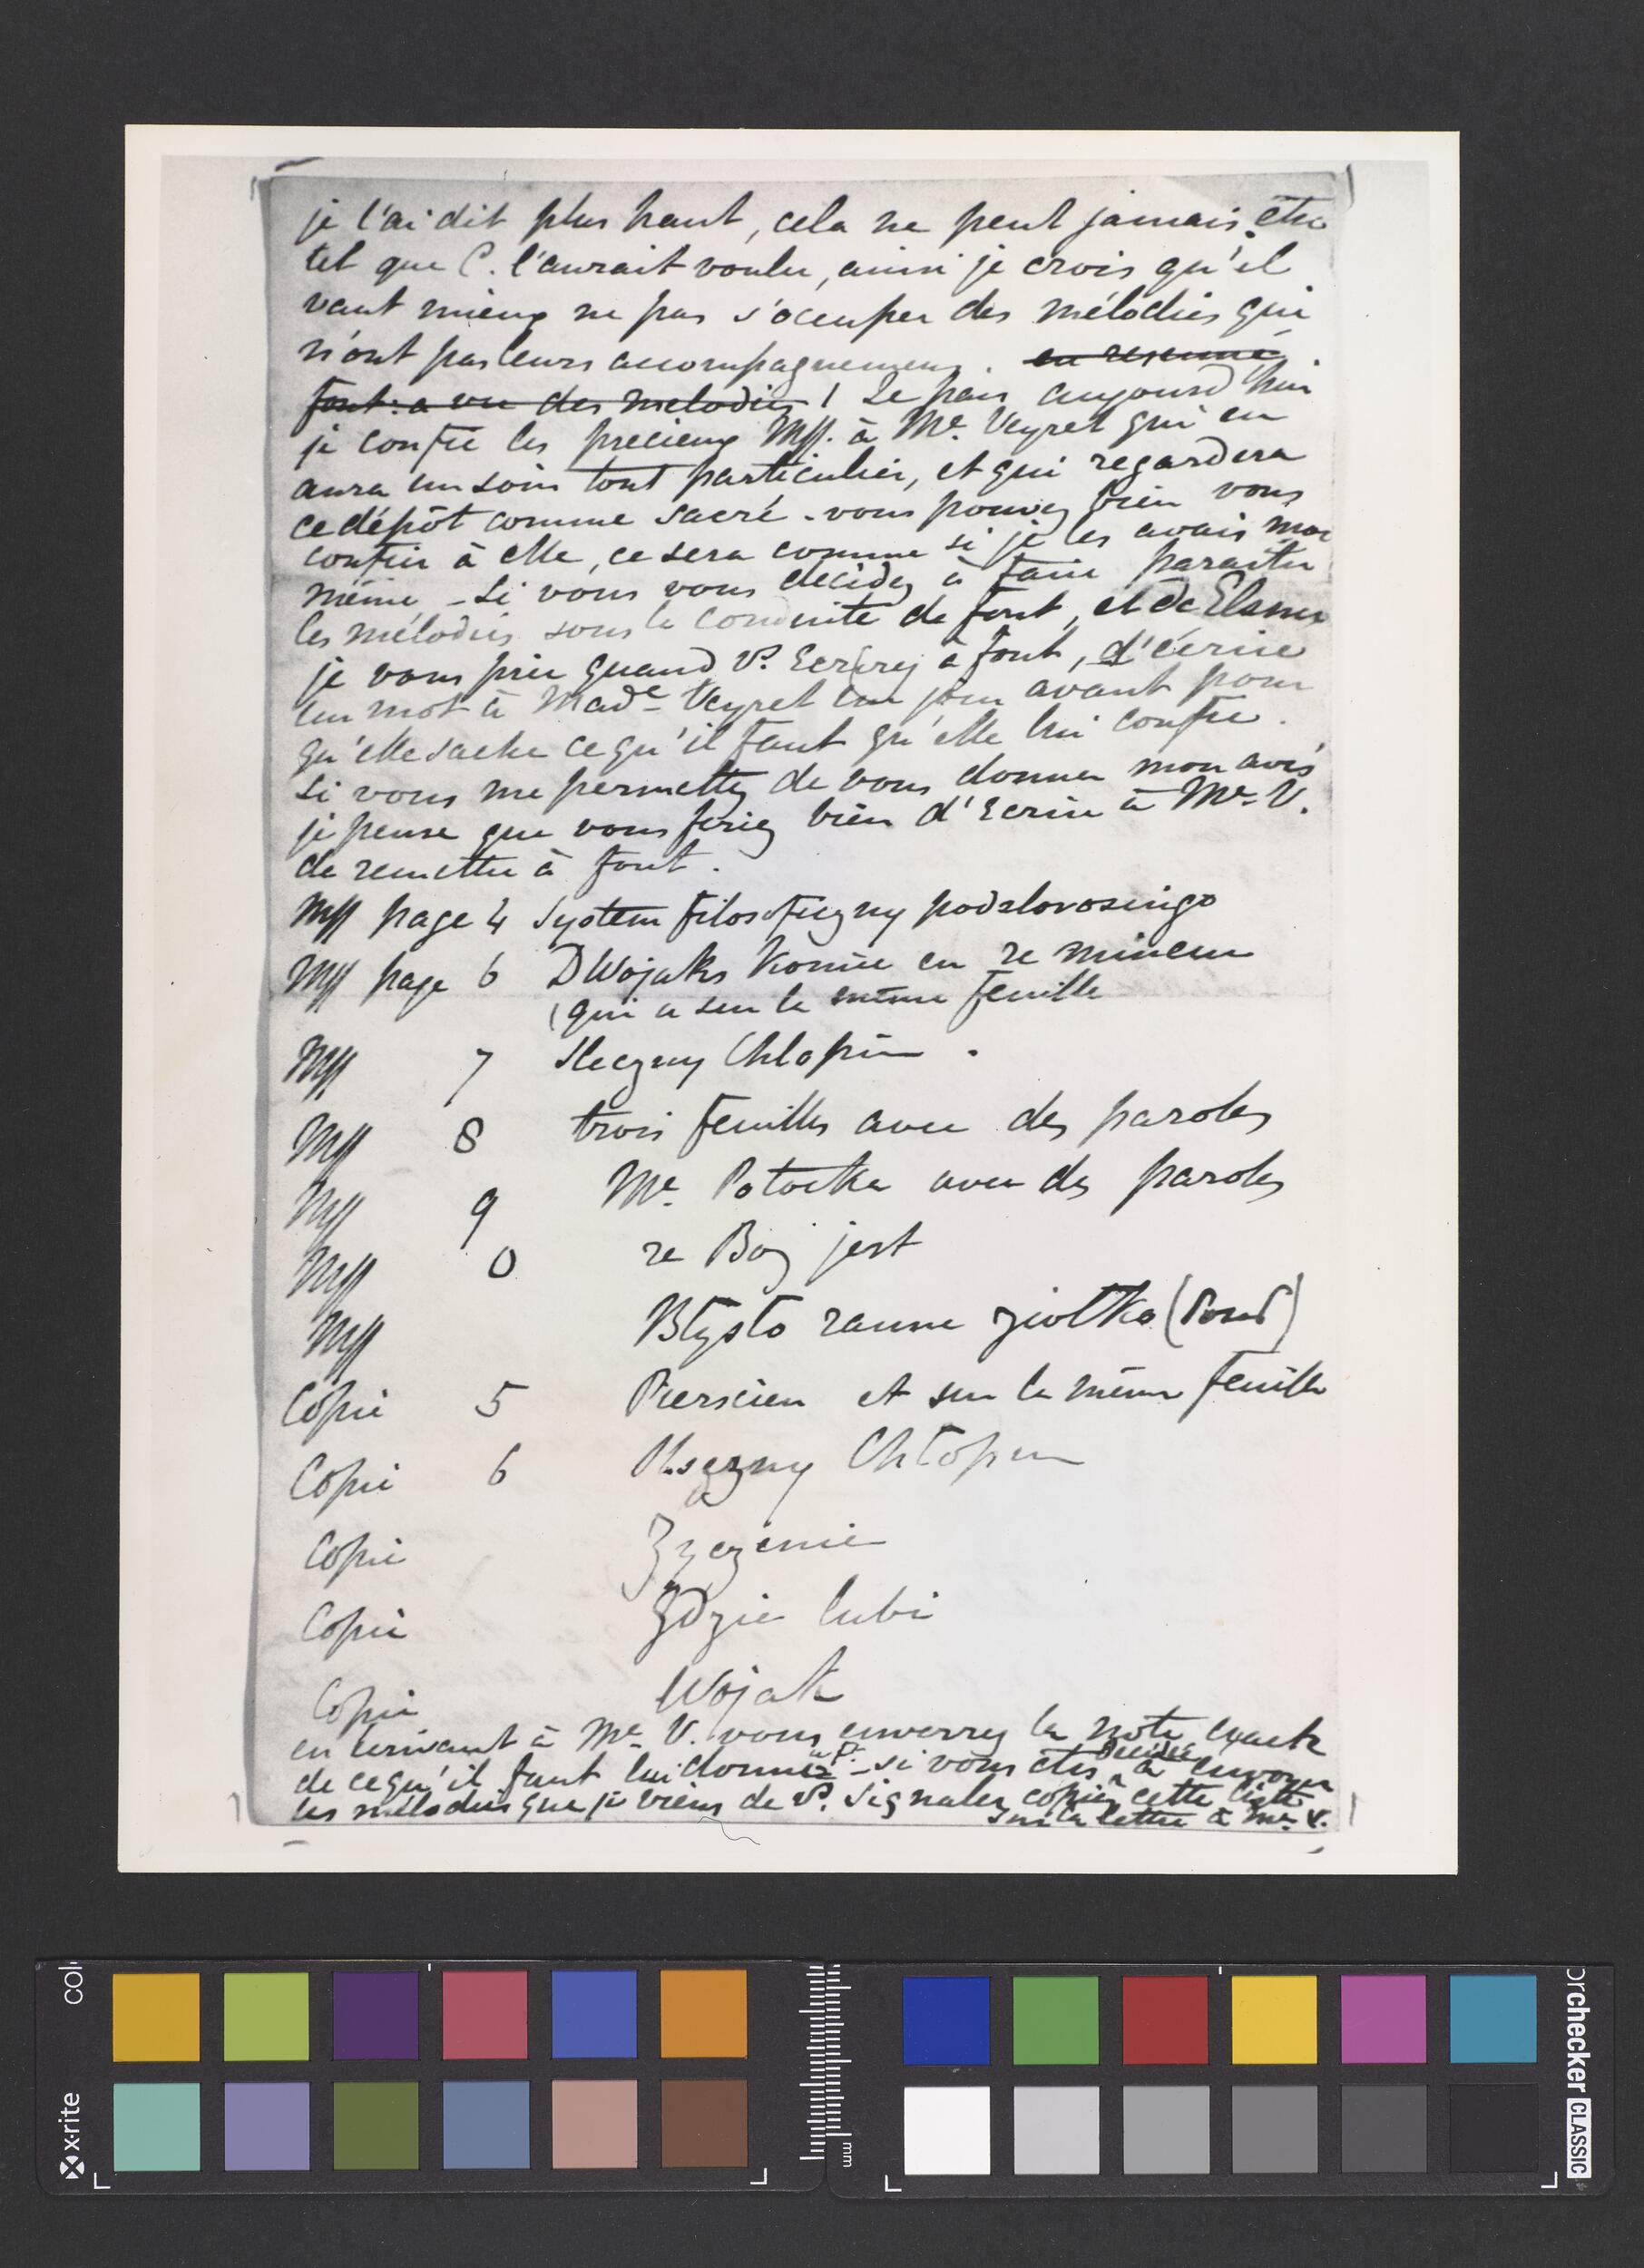 je l'ai dit plus haut, cela ne peut jamais être
tel que C. l'aurait voulu, ainsi je crois qu'il
vaut mieux ne pas s'occuper des mélodies qui
n'ont pas leurs accompagnemens. en resumé
font: a vu des melodies ! Je pars aujourd'hui
je confie les precieux Mss. à Me. Veyret qui en
aura un soin tout particulier, et qui regardera
ce dépôt comme sacré - vous pouvez bien vous
confier à elle, ce sera comme si je les avais moi
même - Si vous vous décidez à faire paraitre
les mélodies sous la conduite de font, et de Elsner
je vous prie quand V. Ecrirez à font, d'écrire
un mot à Made Veyret un jour avant pour
qu'elle sache ce qu'il faut qu'elle lui confie.
Si vous me permettez de vous donner mon avis
je pense que vous feriez bien d'Ecrire à Me. V.
de remettre à font.
Mss page 4 System filosoficzny
Mss page 6 DWojaks Konie en re mineur
(qui a sur la même feuille
Mss 7 sliczny Chlopiec.
Mss 8 trois feuilles avec des paroles
Mss 9 Me. Potocka avec des paroles
Mss 0 ze Boz jest
Mss Błysło ranne ziolko (Fond)
Copie 5 Pierscien et sur la même feuille
Copie 6 Chłopiec
Copie Zyczenie
Copie Gdzie lubi
Copie Wojak
en ecrivant à Me. V. vous enverrez la note exacte
de ce qu'il faut lui donner - si vous êtes décidée à envoyer
les mélodies que je viens de V. signaler copiez cette liste
sur la lettre à Me. V.
x-rite
mm
colorchecker CLASSIC